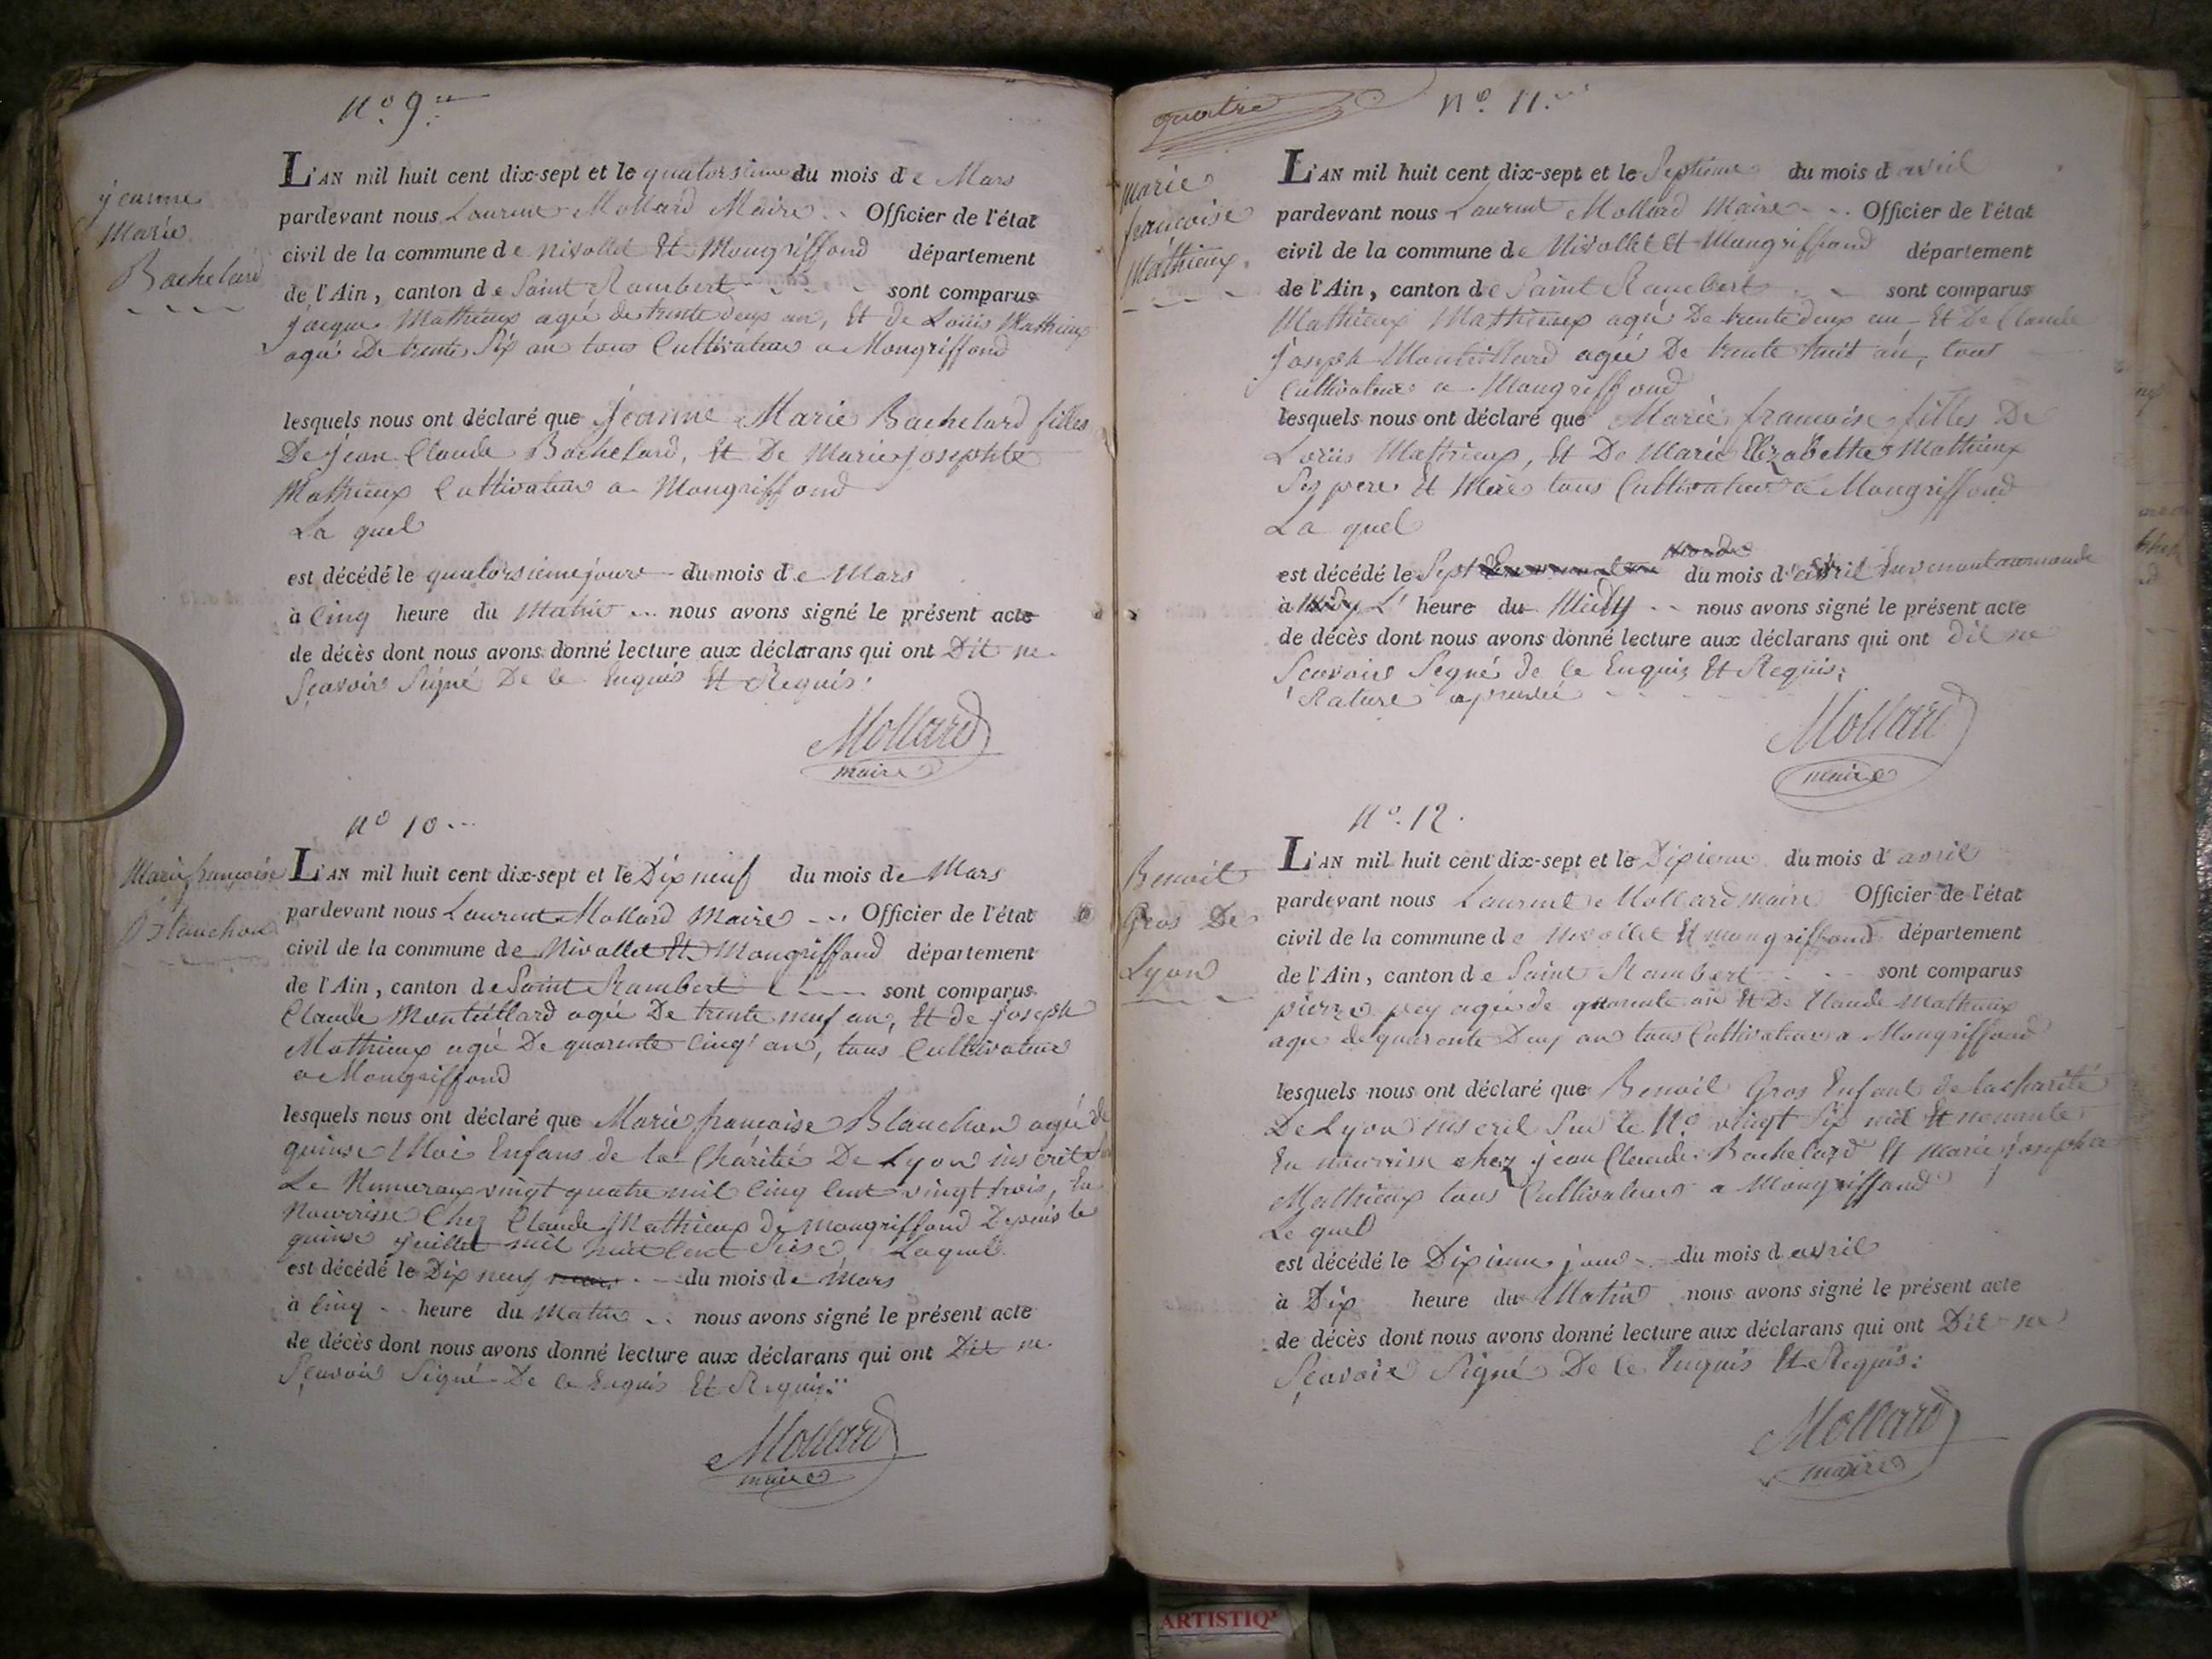 N.o 9.
jeanne
Marie
Bachelard
L'AN mil huit cent dix-sept et le quatorsieme du mois de Mars
pardevant nous Laurent Mollard Maire Officier de l'état
civil de la commune de nivollet Et Mongriffond département
de l'Ain, canton de Saint Rambert sont comparus
jacque Mathieux agé de trente deux an, Et de Loüis Mathieux
agé De trente Six an tous Cultivateur a Mongriffond
lesquels nous ont déclaré que jeanne Marie Bachelard filles
De jean Claude Bachelard, Et De Marie josephte
Mathieux Cultivateur a Mongriffond
La quel
est décédé le quatorsieme jour du mois de Mars
à Cinq heure du Matin nous avons signé le présent acte
de décès dont nous avons donné lecture aux déclarans qui ont Dit ne
Sçavoir Signé De ce Enquis Et Requis.
Mollard
maire
N.o 10
Marie françoise
Blanchon
L'AN mil huit cent dix-sept et le Dix neuf du mois de Mars
pardevant nous Laurent Mollard Maire Officier de l'état
civil de la commune de Nivollet Et Mongriffond département
de l'Ain, canton de Saint Rambert sont comparus
Claude Montillard agé De trente neuf an, Et de joseph
Mathieux agé De quarente Cinq an, tous Cultivateur
a Mongriffond
lesquels nous ont déclaré que Marie françoise Blanchon agé de
quinse Moi Enfans de la Charité De Lyon inscrit
Le Numeraux vingt quatre mil Cinq Cent vingt trois, En
Nourrisse Chez Claude Mathieux de Mongriffond Depuis le
quinse juillet mil huit Cent Seise, Laquel
est décédé le Dix neuf du mois de Mars
à Cinq heure du Matin nous avons signé le présent acte
de décès dont nous avons donné lecture aux déclarans qui ont Dit ne
Sçavoir Signé De ce Enquis Et Requis
Mollard
maire
quatre
N.o 11.
marie
francoise
Mathieux.
L'AN mil huit cent dix-sept et le Septieme du mois d avril
pardevant nous Laurent Mollard Maire Officier de l'état
civil de la commune de Nivollet Et Mongriffond département
de l'Ain, canton de Saint Rambert sont comparus
Mathieux Mathieux agé De trente deux an Et De Claude
joseph Montillard agé De trente huit an, tous
Cultivateur a Mongriffond
lesquels nous ont déclaré que Marie francoise filles De
Loüis Mathieux, Et De Marie Elizabethe Mathieux
Ses pere Et Mere tous Cultivateur a Mongriffond
La quel
est décédé le Sept du mois d'avril En venant au monde
à L' heure du Midy nous avons signé le présent acte
de décès dont nous avons donné lecture aux déclarans qui ont dit ne
Scavoir Segné de ce Enquis Et Requis;
Rature
Mollard
maire
N.o 12.
Benoit
Gros De
Lyon
L'AN mil huit cent dix-sept et le Dixieme du mois d' avril
pardevant nous Laurent Mollard maire Officier de l'état
civil de la commune de Nivollet Et mongriffond département
de l'Ain, canton de Saint Rambert sont comparus
pierre pey agé de quarente an Et De Claude Mathieux
age de quarente Deux an tous Cultivateur a Mongriffond
lesquels nous ont déclaré que Benoit Gros Enfant de la charité
De Lyon inscrit Sur le N.o vingt Six mil Et nonante
En nourrisse chez jean Claude Bachelard Et marie josephte
Mathieux tous Cultivateur a Mongriffond
Le quel
est décédé le Dixieme jour du mois d avril
à Dix heure du Matin nous avons signé le présent acte
de décès dont nous avons donné lecture aux déclarans qui ont Dit ne
Sçavoir Signé De ce Enquis Et Requis:
Mollard
maire
ARTISTIQ